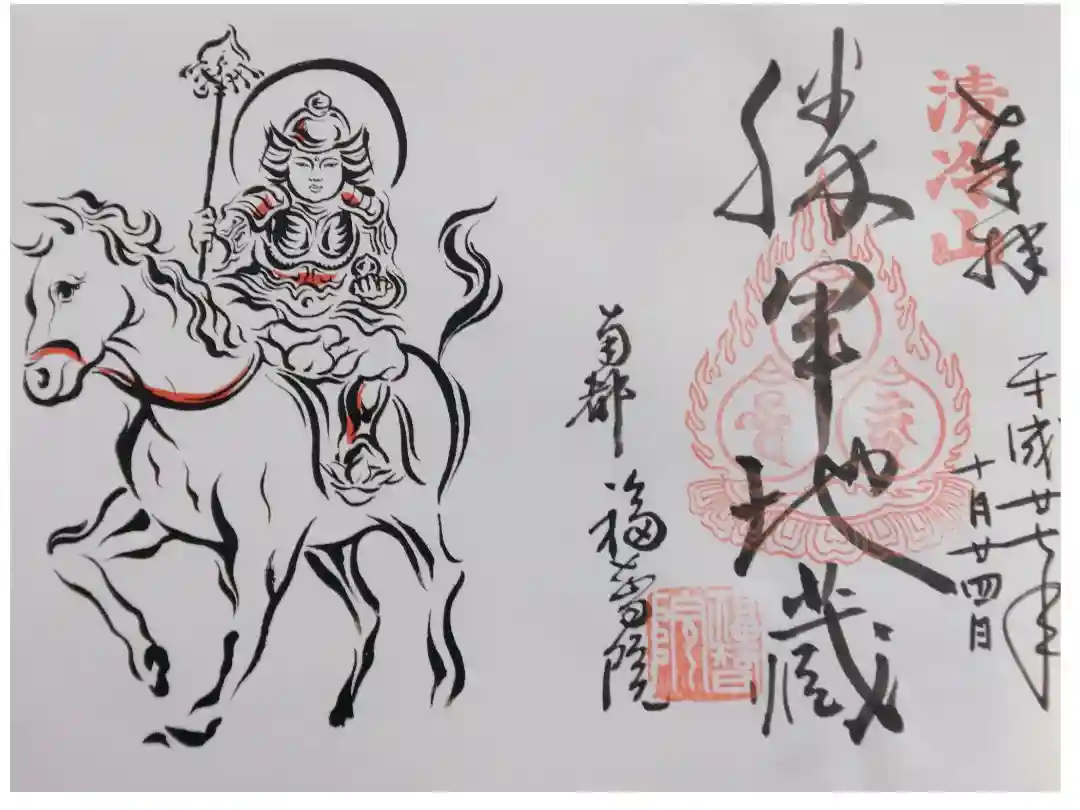 奉拝
清冷山
平成廿七年
十月廿四日
勝軍地蔵
南都 福智院
福智院